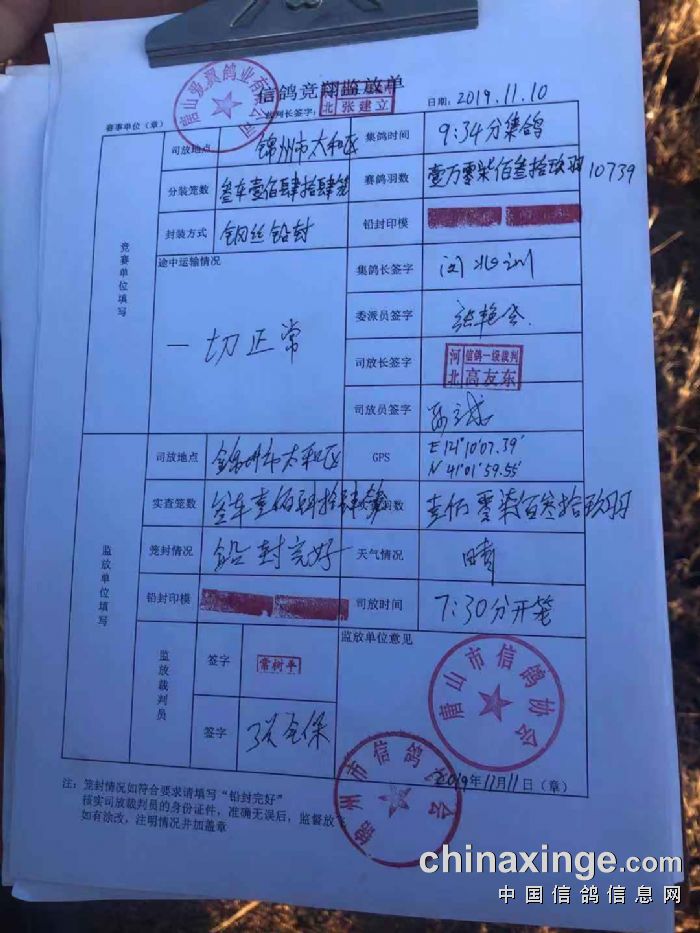 信鸽竞翔监放单
裁判长签字：
北 张建立
日期：2019.11.10
赛事单位（章）
司放地点 锦州市太和区 集鸽时间 9:34分集鸽
分装笼数 叁车壹佰肆拾肆笼 赛鸽羽数 壹万零柒佰叁拾玖羽 10739
封装方式 钢丝铅封 铅封印模
途中运输情况 集鸽长签字
一切正常
委派员签字
司放长签字 河北 信鸽一级裁判 高友东
司放员签字
竞赛单位填写
司放地点 锦州市太和区 GPS E 121°10′07.39″
N 41°01′59.55″
实查笼数 叁车壹佰肆拾肆笼 羽数 壹万零柒百叁拾玖羽
笼封情况 铅封完好 天气情况 晴
铅封印模 司放时间 7:30分开笼
监放单位填写
监放裁判员 签字 常树平 监放单位意见
签字 张全保
唐山市信鸽协会
锦州市信鸽协会
2019年11月11日（章）
注：笼封情况如符合要求请填写“铅封完好”
核实司放裁判员的身份证件，准确无误后，监督放飞
如有涂改，注明情况并加盖章
chinaxinge.com
中国信鸽信息网